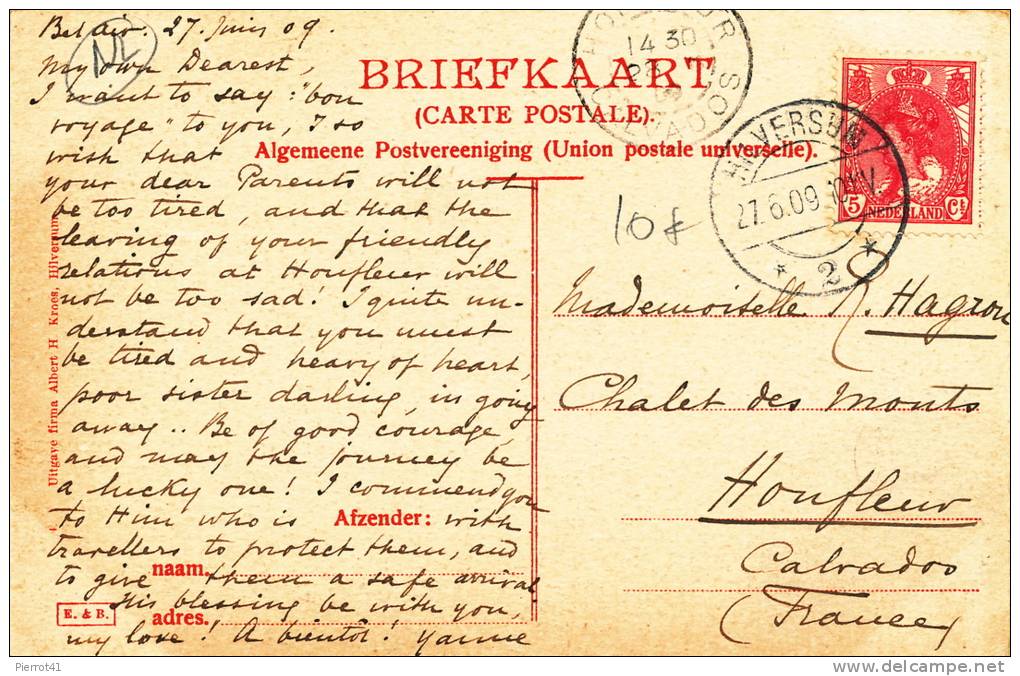 Bel air. 27. Juin 09.
NL
My own Dearest,
I want to say: "bon
voyage" to you, I so
wish that
your dear Parents will not
be too tired, and that the
leaving of your friendly
relations at Honfleur will
not be too sad! I quite un-
derstand that you must
be tired and heavy of heart,
poor sister darling, in going
away.. Be of good courage,
and may the journey be
a lucky one! I commend you
to Him who is with
travellers to protect them, and
to give them a safe arrival
His blessing be with you,
my love! A bientôt! Yanne
BRIEFKAART
(CARTE POSTALE).
Algemeene Postvereeniging (Union postale universelle).
Afzender:
naam.
adres.
E. & B.
Uitgave firma Albert H. Kroes, Hilversum
14 30
CALVADOS
HILVERSUM
27.6.09
2
5 NEDERLAND Ct
10 £
Mademoiselle R. Hagron
Chalet des Monts
Honfleur
Calvados
(France)
Pierrot41
www.delcampe.net